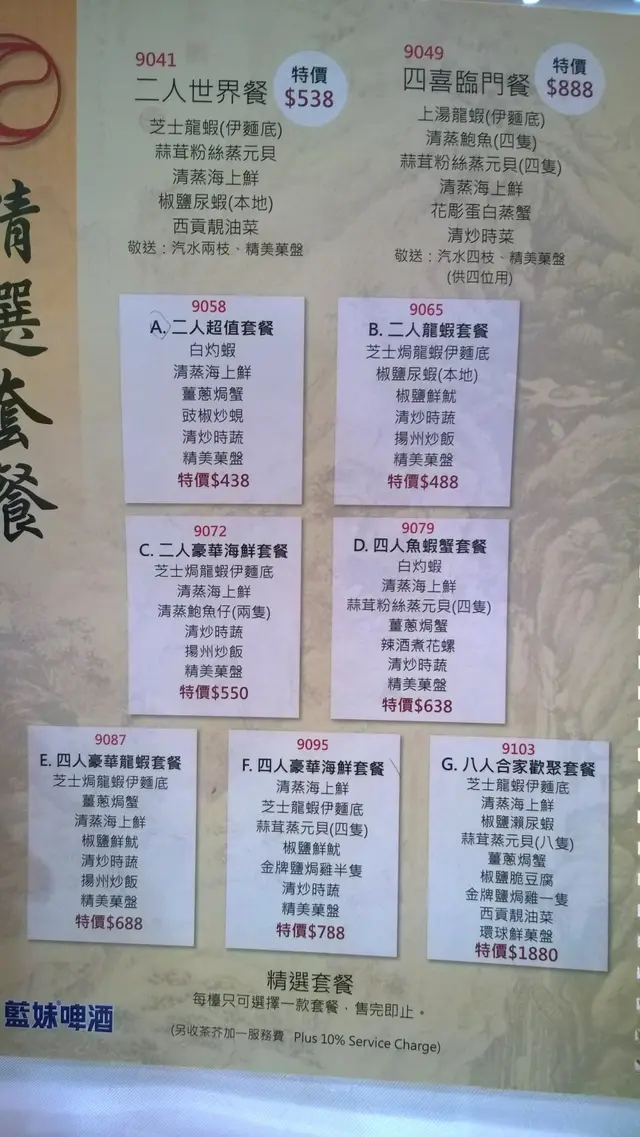 精選套餐
9041
二人世界餐
特價
$538
芝士龍蝦(伊麵底)
蒜茸粉絲蒸元貝
清蒸海上鮮
椒鹽尿蝦(本地)
西貢靚油菜
敬送：汽水兩枝、精美菓盤
9049
四喜臨門餐
特價
$888
上湯龍蝦(伊麵底)
清蒸鮑魚(四隻)
蒜茸粉絲蒸元貝(四隻)
清蒸海上鮮
花彫蛋白蒸蟹
清炒時菜
敬送：汽水四枝、精美菓盤
(供四位用)
9058
A. 二人超值套餐
白灼蝦
清蒸海上鮮
薑蔥焗蟹
豉椒炒蜆
清炒時蔬
精美菓盤
特價$438
9065
B. 二人龍蝦套餐
芝士焗龍蝦伊麵底
椒鹽尿蝦(本地)
椒鹽鮮魷
清炒時蔬
揚州炒飯
精美菓盤
特價$488
9072
C. 二人豪華海鮮套餐
芝士焗龍蝦伊麵底
清蒸海上鮮
清蒸鮑魚仔(兩隻)
清炒時蔬
揚州炒飯
精美菓盤
特價$550
9079
D. 四人魚蝦蟹套餐
白灼蝦
清蒸海上鮮
蒜茸粉絲蒸元貝(四隻)
薑蔥焗蟹
辣酒煮花螺
清炒時蔬
精美菓盤
特價$638
9087
E. 四人豪華龍蝦套餐
芝士焗龍蝦伊麵底
薑蔥焗蟹
清蒸海上鮮
椒鹽鮮魷
清炒時蔬
揚州炒飯
精美菓盤
特價$688
9095
F. 四人豪華海鮮套餐
清蒸海上鮮
芝士龍蝦伊麵底
蒜茸蒸元貝(四隻)
椒鹽鮮魷
金牌鹽焗雞半隻
清炒時蔬
精美菓盤
特價$788
9103
G. 八人合家歡聚套餐
芝士龍蝦伊麵底
清蒸海上鮮
椒鹽瀨尿蝦
蒜茸蒸元貝(八隻)
薑蔥焗蟹
椒鹽脆豆腐
金牌鹽焗雞一隻
西貢靚油菜
環球鮮菓盤
特價$1880
精選套餐
每檯只可選擇一款套餐，售完即止。
(另收茶芥加一服務費 Plus 10% Service Charge)
藍妹®啤酒